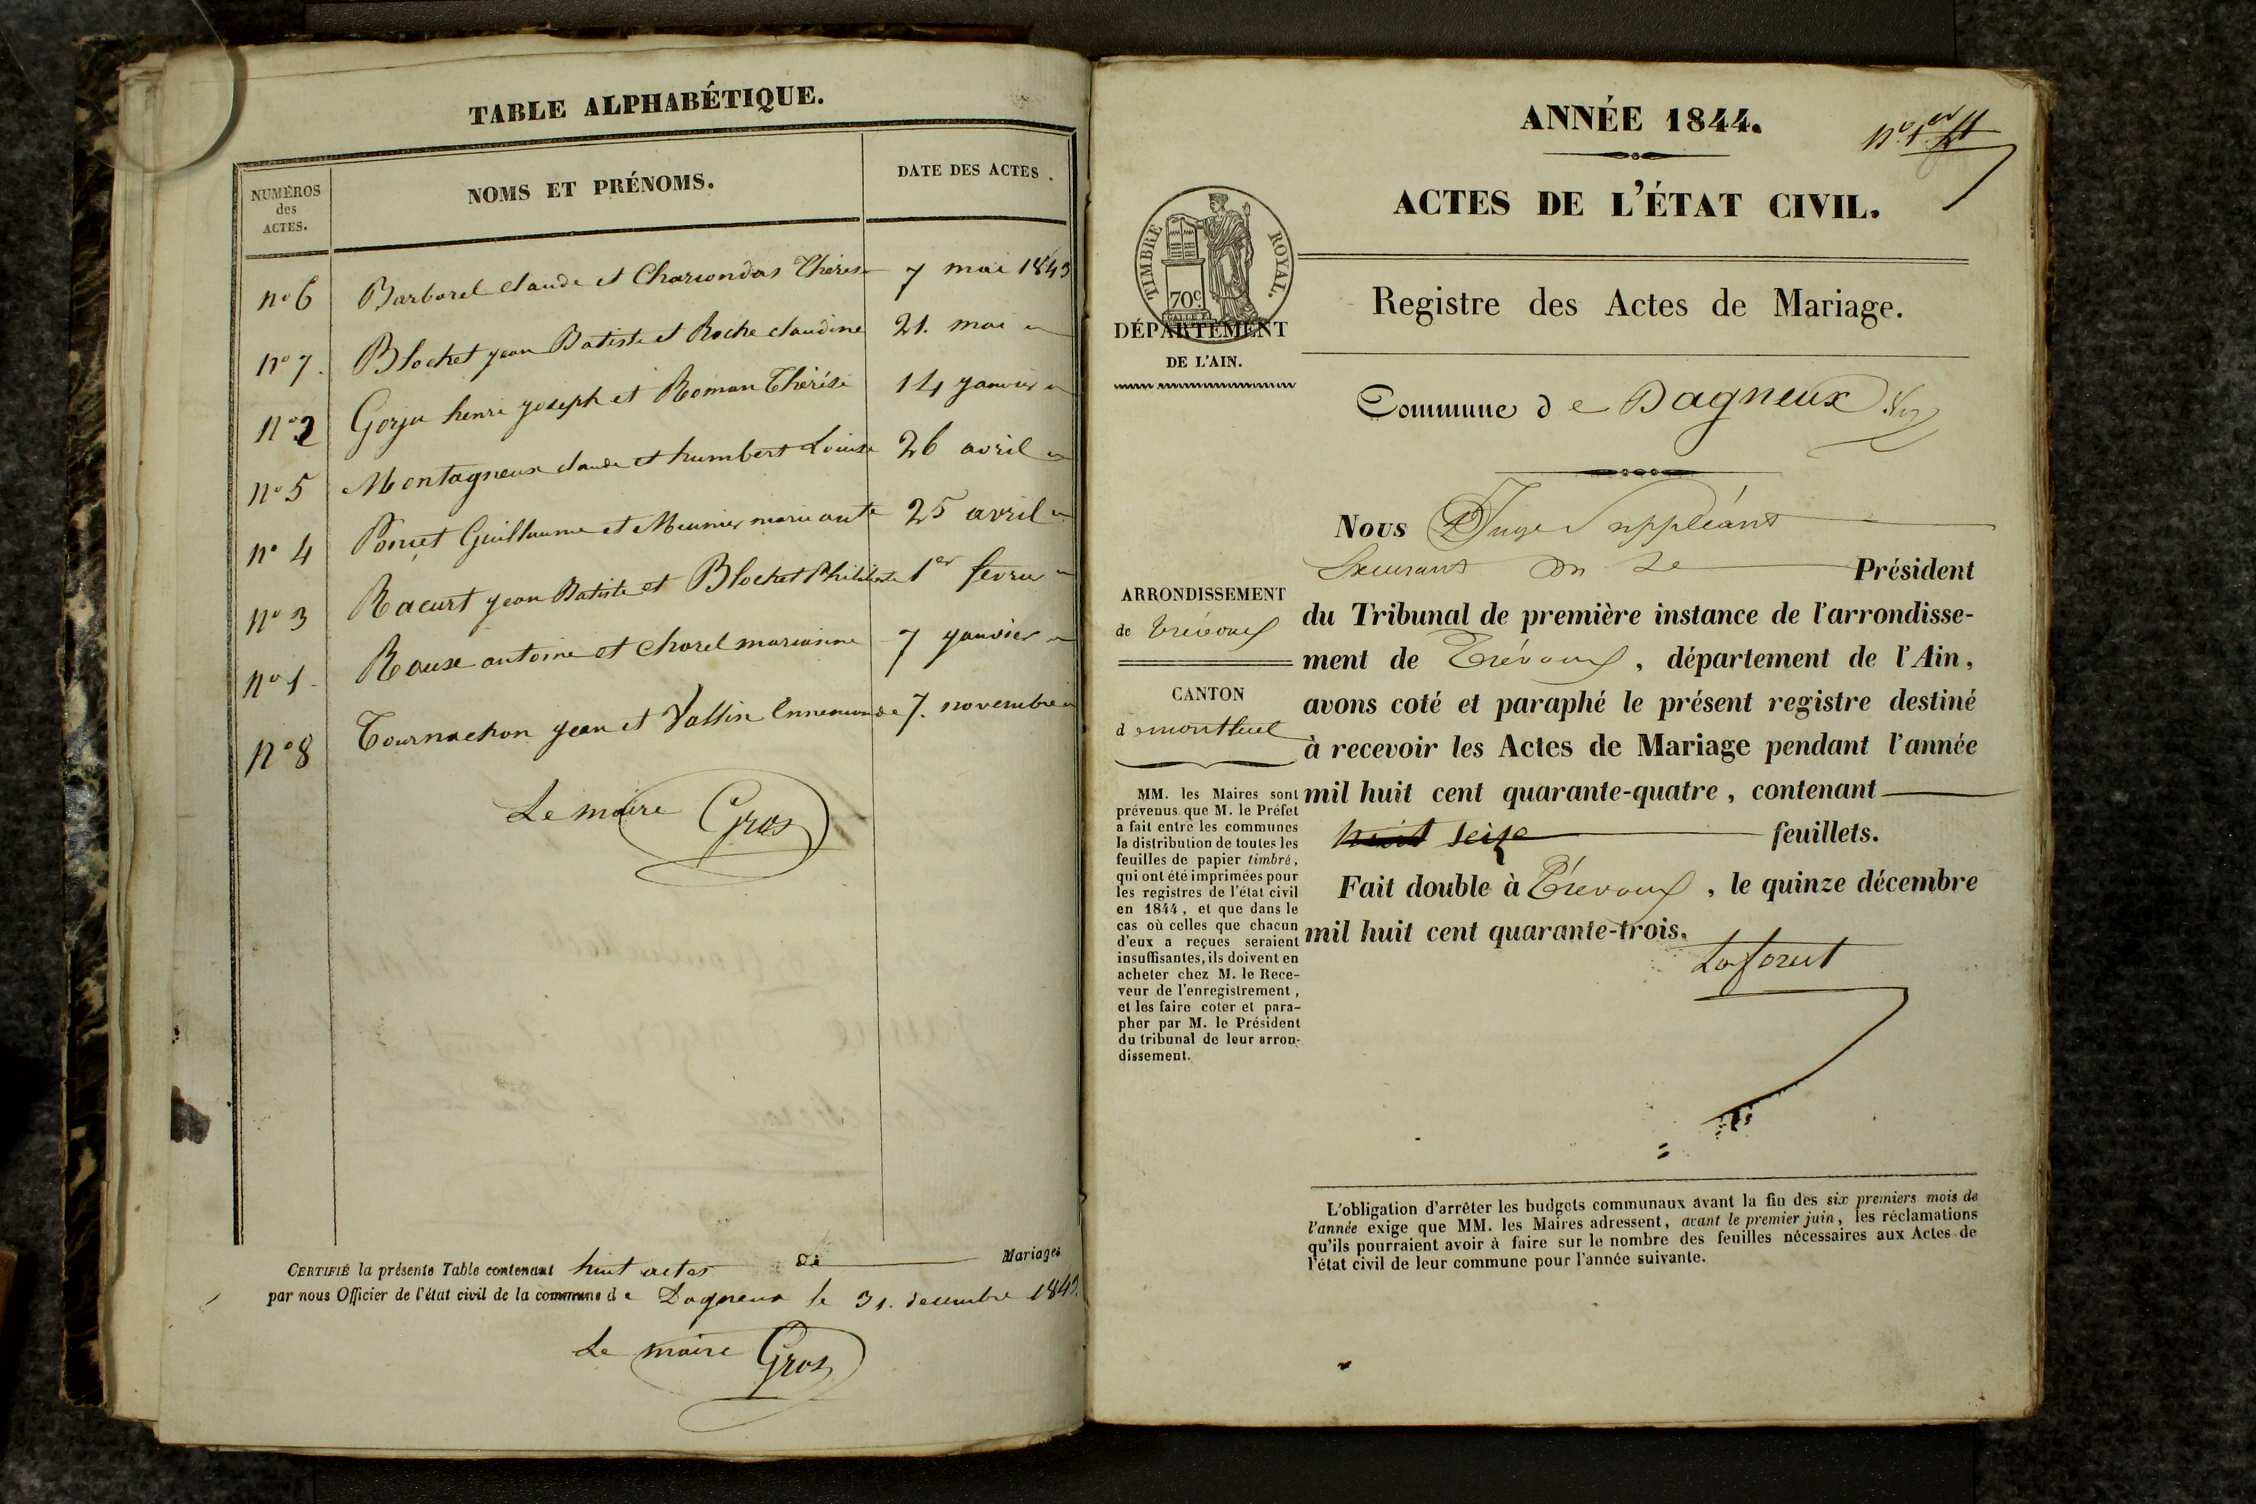 TABLE ALPHABÉTIQUE.
NUMÉROS
des
ACTES.
NOMS ET PRÉNOMS.
DATE DES ACTES.
no 6 Barborel claude et Charcondas Thérèse 7 mai 1843
no 7. Blochet jean Batiste et Roche claudine 21. mai
no 2 Gorju henri joseph et Roman Thérèse 14 janvier
no 5 Montagneux claude et humbert Louise 26 avril
no 4 Poncet Guillaume et Meunier marie 25 avril
no 3 Racurt jean Batiste et Blochet 1er fevrier
no 1 Roux antoine et chorel marianne 7 janvier
no 8 Tournachon jean et Vallin Ennemonde 7. novembre
Le maire Gros
CERTIFIÉ la présente Table contenant huit actes de Mariages
par nous Officier de l'état civil de la commune de Dagneux le 31. decembre 1843.
Le maire Gros
ANNÉE 1844.
no 1er
ACTES DE L'ÉTAT CIVIL.
TIMBRE ROYAL.
70c
DÉPARTEMENT
DE L'AIN.
Registre des Actes de Mariage.
Commune de Dagneux
ARRONDISSEMENT
de Trévoux
CANTON
de montluel
MM. les Maires sont
prévenus que M. le Préfet
a fait entre les communes
la distribution de toutes les
feuilles de papier timbré,
qui ont été imprimées pour
les registres de l'état civil
en 1844, et que dans le
cas où celles que chacun
d'eux a reçues seraient
insuffisantes, ils doivent en
acheter chez M. le Rece-
veur de l'enregistrement,
et les faire coter et para-
pher par M. le Président
du tribunal de leur arron-
dissement.
Nous Juge Suppléant
Président
du Tribunal de première instance de l'arrondisse-
ment de Trévoux, département de l'Ain,
avons coté et paraphé le présent registre destiné
à recevoir les Actes de Mariage pendant l'année
mil huit cent quarante-quatre, contenant
huit seize feuillets.
Fait double à Trévoux, le quinze décembre
mil huit cent quarante-trois.
Laforest
L'obligation d'arrêter les budgets communaux avant la fin des six premiers mois de
l'année exige que MM. les Maires adressent, avant le premier juin, les réclamations
qu'ils pourraient avoir à faire sur le nombre des feuilles nécessaires aux Actes de
l'état civil de leur commune pour l'année suivante.